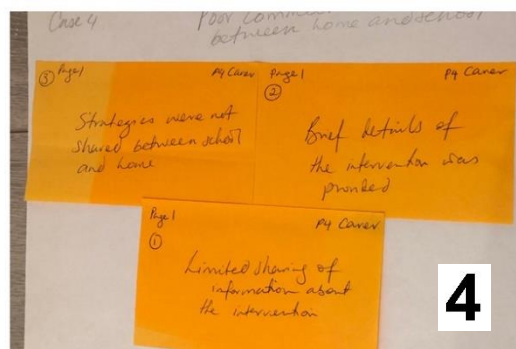 Case 4
Poor Commu
between home and school
③ Page 1 P4 Carer
Strategies were not
shared between school
and home
Page 1 P4 Carer
②
Brief details of
the intervention was
provided
Page 1 P4 Carer
①
Limited sharing of
information about
the intervention
4